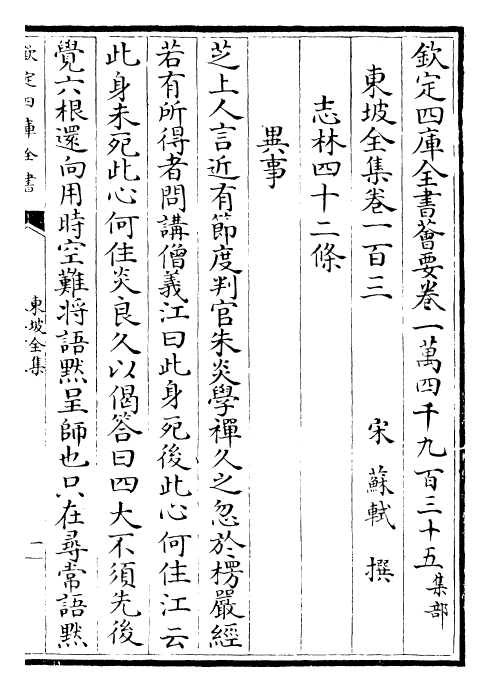 欽定四庫全書薈要卷一萬四千九百三十五集部
東坡全集卷一百三
宋 蘇軾 撰
志林四十二條
異事
芝上人言近有節度判官朱炎學禪久之忽於楞嚴經
若有所得者問講僧義江曰此身死後此心何住江云
此身未死此心何住炎良久以偈答曰四大不須先後
覺六根還向用時空難將語默呈師也只在尋常語默
欽定四庫全書
東坡全集
一